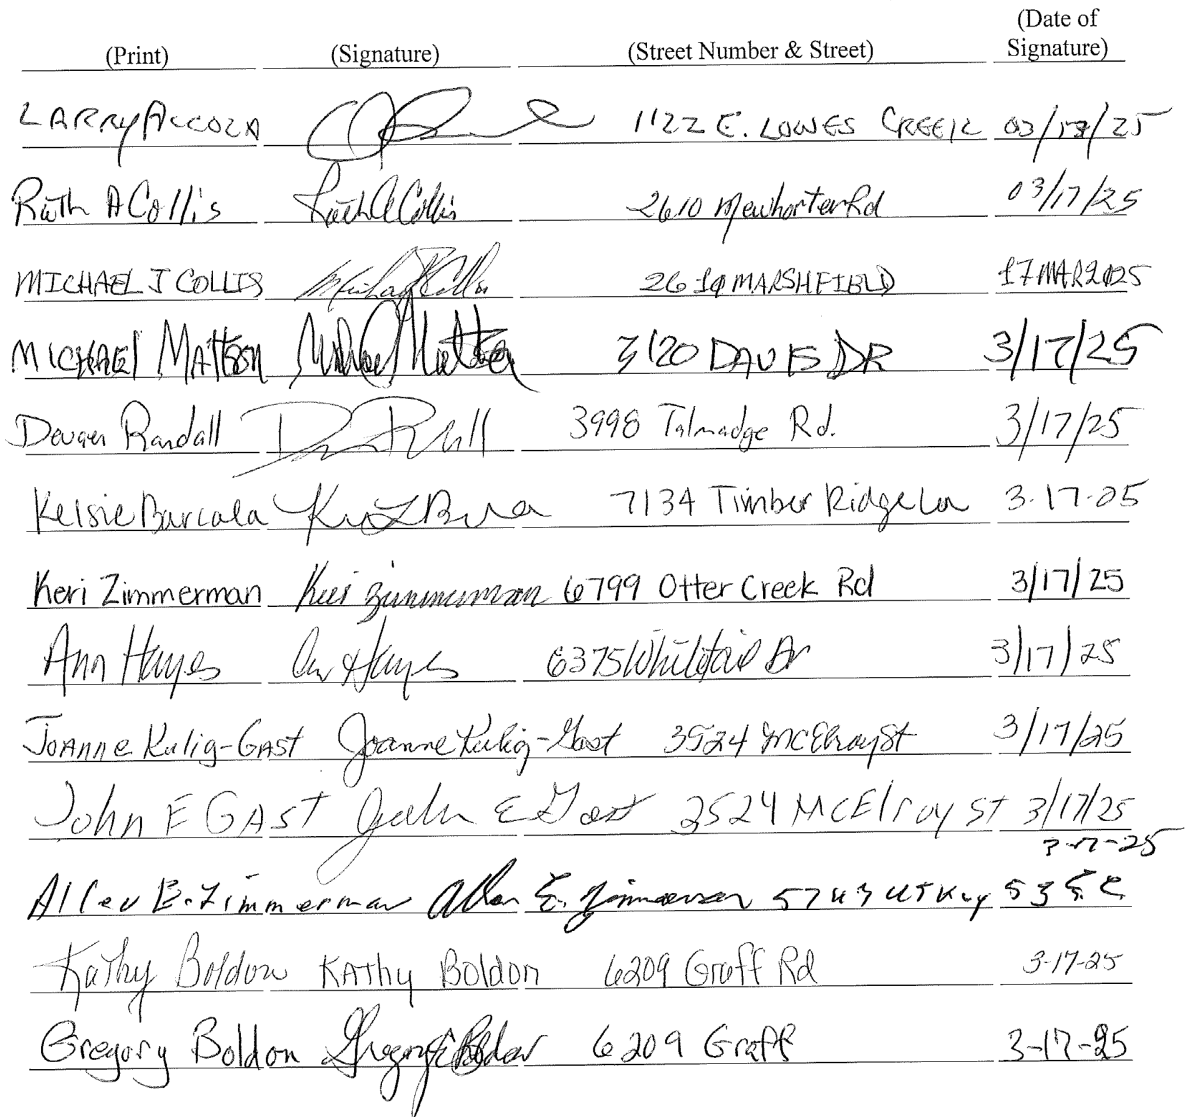 (Print) (Signature) (Street Number & Street) (Date of Signature)
LARRY ACCOLA 1122 E. LOWES CREEK 03/17/25
Ruth A Collis Ruth A Collis 2610 Mewhorter Rd 03/17/25
MICHAEL J COLLIS Michael J Collis 2610 MARSHFIELD 17 MAR 2025
MICHAEL MATTSON Michael Mattson 3120 DAVIS DR 3/17/25
Devaen Randall 3998 Talmadge Rd. 3/17/25
Kelsie Barcala 7134 Timber Ridge Ln 3-17-25
Keri Zimmerman Keri Zimmerman 6799 Otter Creek Rd 3/17/25
Ann Hayes Ann Hayes 6375 Whitetail Dr 3/17/25
JoAnne Kulig-Gast Joanne Kulig-Gast 3524 McElroy St 3/17/25
John E GAST John E Gast 3524 McElroy St 3/17/25
3-17-25
Allen E. Zimmerman Allen E. Zimmerman 5743 US Hwy 53 S.E.
Kathy Boldon KAThy Boldon 6209 Graff Rd 3-17-25
Gregory Boldon Gregory Boldon 6209 Graff 3-17-25